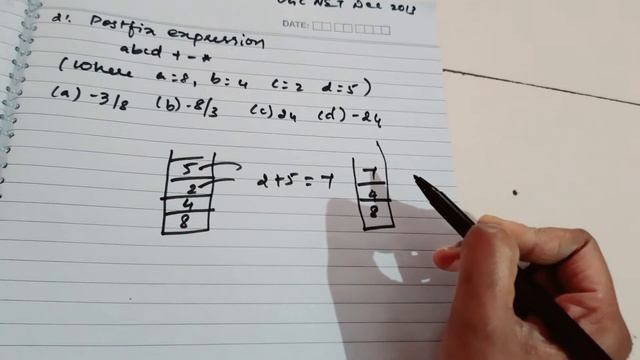 UGC NET Dec 2013
DATE:
d: Postfix expression
abcd + - *
(Where a=8, b=4 c=2 d=5)
(a) -3/8 (b) -8/3 (c) 24 (d) -24
5
2
4
8
2+5=7
7
4
8